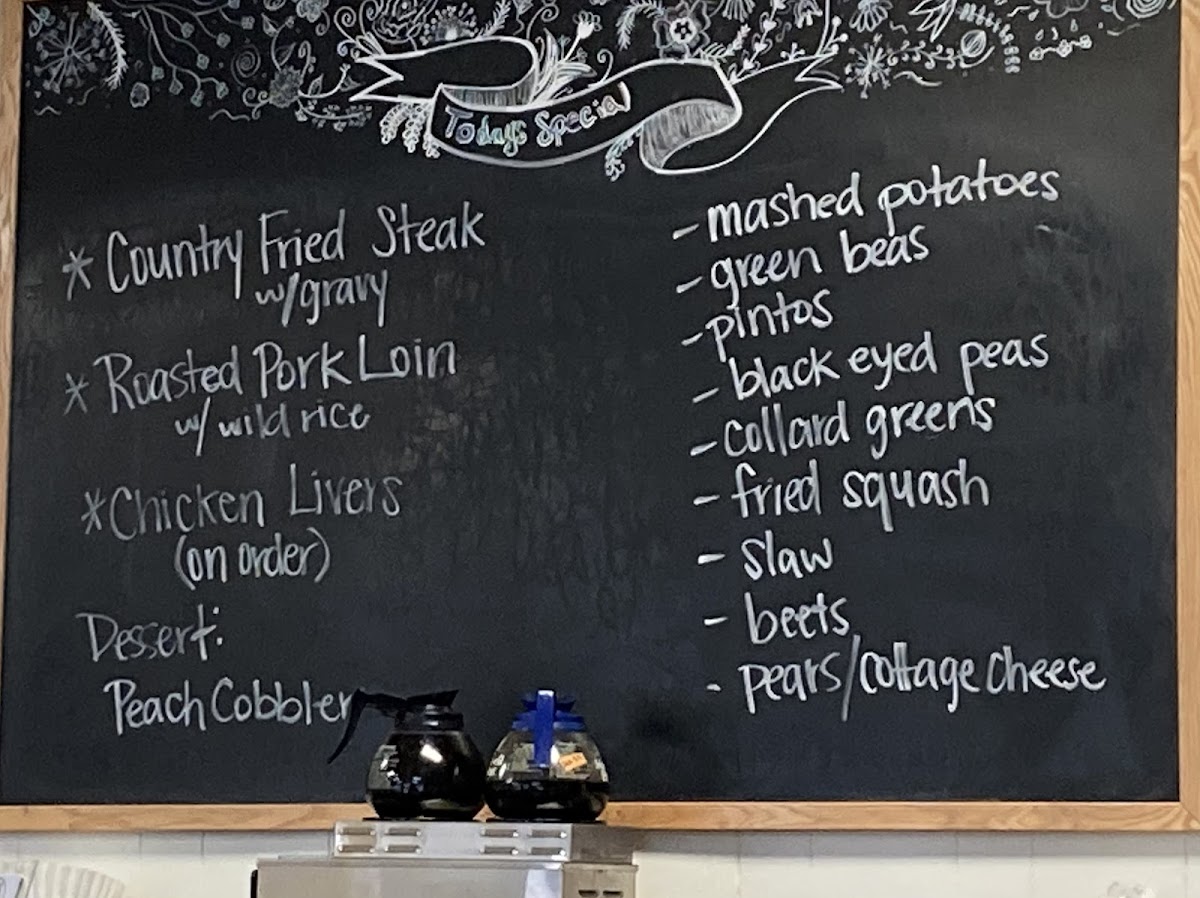 Todays Special
* Country Fried Steak
w/gravy
* Roasted Pork Loin
w/ wild rice
* Chicken Livers
(on order)
Dessert:
Peach Cobbler
- mashed potatoes
- green beas
- pintos
- black eyed peas
- collard greens
- fried squash
- slaw
- beets
- pears/cottage cheese